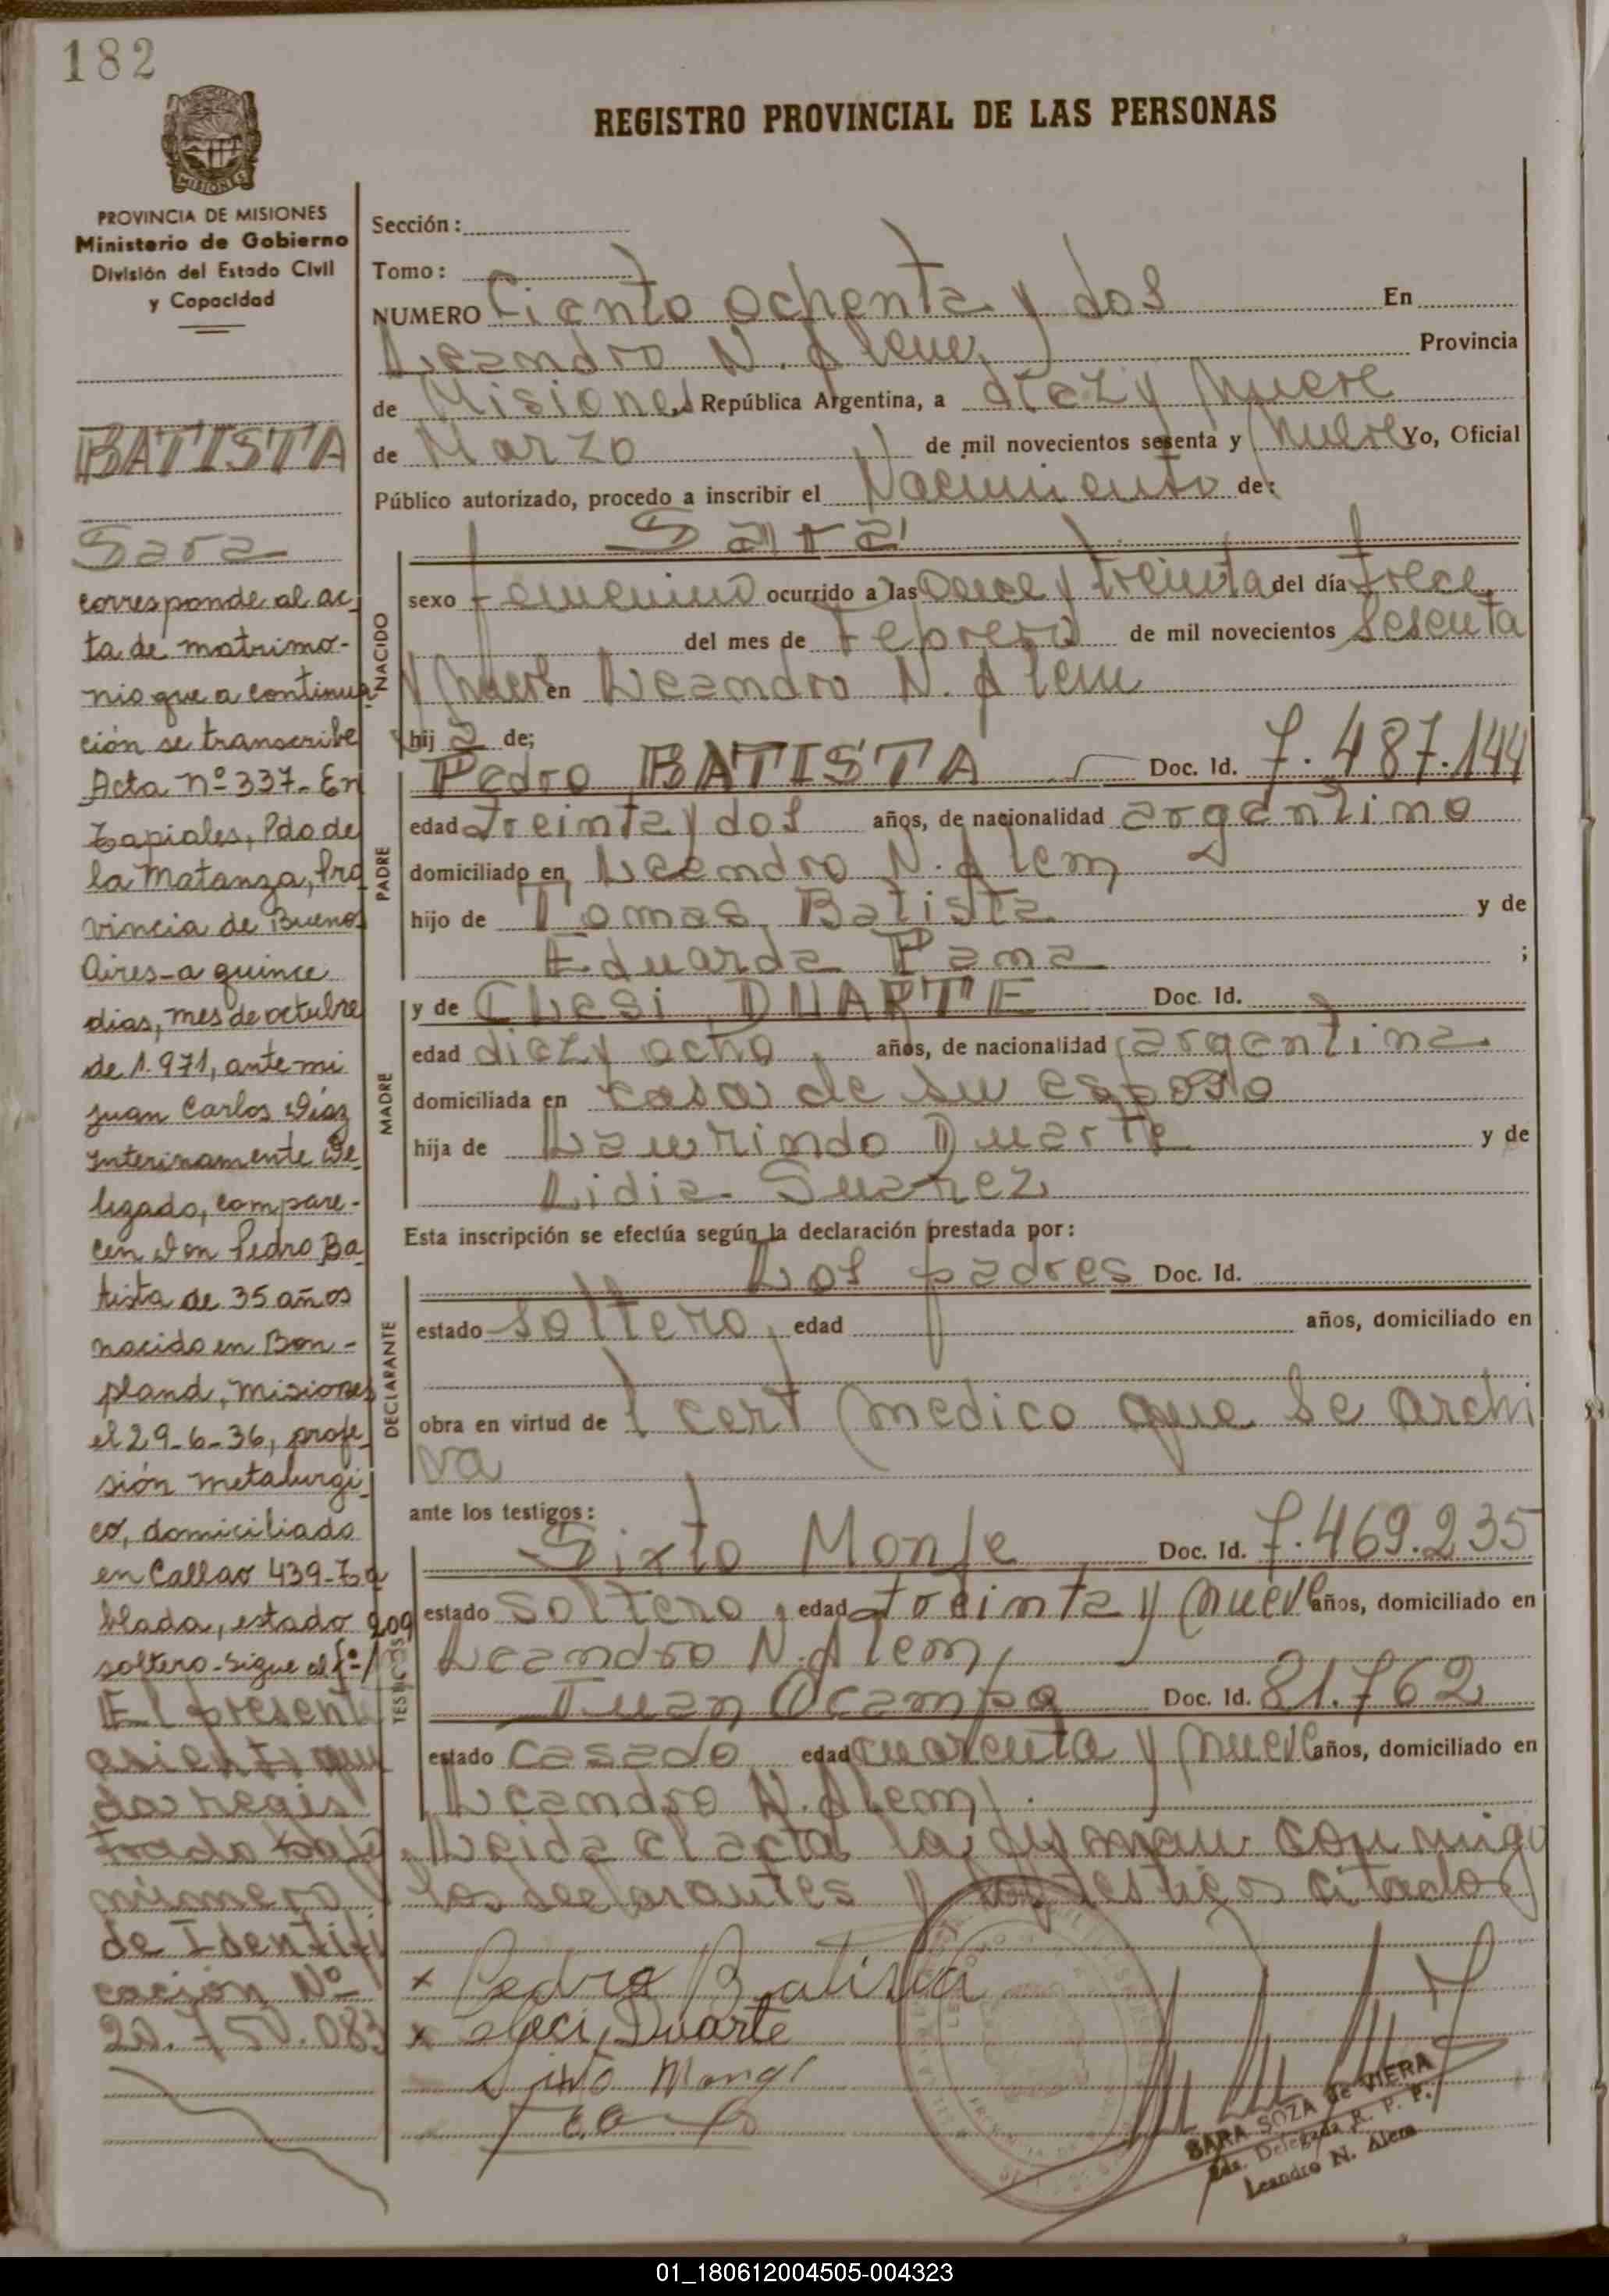 182
REGISTRO PROVINCIAL DE LAS PERSONAS
MISIONES
PROVINCIA DE MISIONES
Ministerio de Gobierno
División del Estado Civil
y Capacidad
BATISTA
Sara
corresponde al ac-
ta de matrimo-
nio que a continua-
ción se transcribe
Acta nº 337- En
Tapiales, Pdo de
la Matanza, Pro
vincia de Buenos
Aires - a quince
dias, mes de octubre
de 1.971, ante mi
Juan Carlos Díaz
Interinamente De-
legado, compare-
cen Don Pedro Ba
tista de 35 años
nacido en Bon-
pland, Misiones
el 29-6-36, profe-
sión metalurgi-
co, domiciliado
en Callao 439-Ta
blada, estado 209
soltero - sigue al fº-/
El present
asiento que
da regis
trado bajo
número
de Identifi
cación Nº
20.750.083
Sección:
Tomo:
NUMERO Ciento ochenta y dos En
Leandro N. Alem, Provincia
de Misiones, República Argentina, a diez y nueve
de Marzo de mil novecientos sesenta y nueve Yo, Oficial
Público autorizado, procedo a inscribir el Nacimiento de:
Sara
NACIDO
sexo femenino ocurrido a las once y treinta del día trece
del mes de Febrero de mil novecientos sesenta
y nueve en Leandro N. Alem
hij a de;
PADRE
Pedro BATISTA Doc. Id. 7.487.144
edad treinta y dos años, de nacionalidad argentino
domiciliado en Leandro N. Alem
hijo de Tomas Batista y de
Eduarda Pama ;
MADRE
y de DUARTE Doc. Id.
edad diez y ocho, años, de nacionalidad argentina
domiciliada en casa de su esposo
hija de Laurindo Duarte y de
Lidia Suarez
Esta inscripción se efectúa según la declaración prestada por:
DECLARANTE
Los padres Doc. Id.
estado soltero, edad años, domiciliado en
obra en virtud de l cert medico que se archi
va
ante los testigos:
TESTIGOS
Sixto Monje Doc. Id. 7.469.235
estado soltero, edad treinta y nueve años, domiciliado en
Leandro N. Alem,
Juan Ocampo Doc. Id. 81.762
estado casado edad cuarenta y nueve años, domiciliado en
Leandro N. Alem.
Leida el acta la firman conmigo
los declarantes y los testigos citados
x Pedro Batista
x Duarte
SARA SOZA de VIERA
Delegada R. P. P.
Leandro N. Alem
01_180612004505-004323